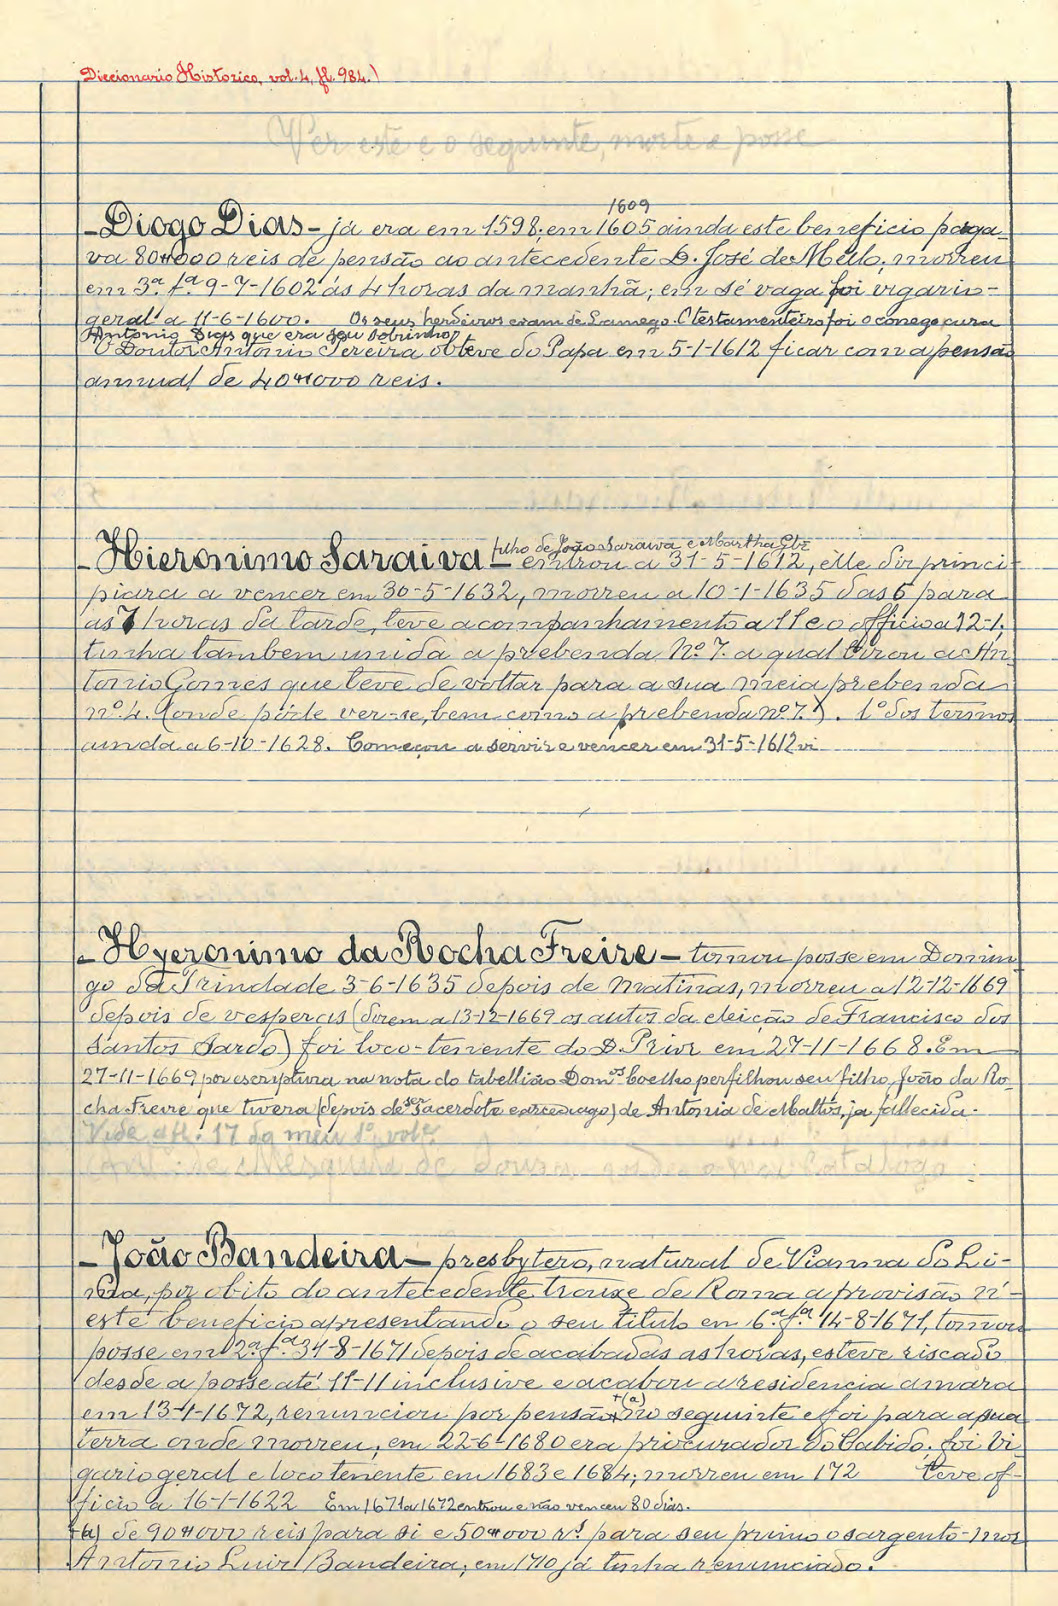 Diccionario Historico, vol. 4, fl. 984.)
Ver este e o seguinte, morte e posse
1609
- Diogo Dias - já era em 1598; em 1605 ainda este beneficio paga-
va 80#000 reis de pensão ao antecedente D. José de Mello; morreu
em 3ª fª 9-7-1602 ás 4 horas da manhã; em sé vaga foi vigario-
geral a 11-6-1600. Os seus herdeiros eram de Lamego. O testamenteiro foi o conego cura
Antonio Dias que era seu sobrinho
O Doutor Antonio Pereira obteve do Papa em 5-1-1612 ficar com a pensão
annual de 40#000 reis.
filho de João Saraiva e Martha Glz
- Hieronimo Saraiva - entrou a 31-5-1612, elle diz princi-
piara a vencer em 30-5-1632, morreu a 10-1-1635 das 6 para
as 7 horas da tarde, teve acompanhamento a 11 e o officio a 12-1,
tinha tambem unida a prebenda Nº 7. a qual tirou a An-
tonio Gomes que teve de voltar para a sua meia prebenda
nº 4. (onde póde ver-se, bem como a prebenda nº 7.). lº dos termos
ainda a 6-10-1628. Começou a servir e vencer em 31-5-1612 vi
- Hyeronimo da Rocha Freire - tomou posse em Domin-
go da Trindade 3-6-1635 depois de matinas, morreu a 12-12-1669
depois de vesperas (dizem a 13-12-1669 os autos da eleição de Francisco dos
Santos Sardo) foi loco-tenente do D. Prior em 27-11-1668. Em
27-11-1669 por escriptura na nota do tabellião Domºs Coelho perfilhou seu filho, João da Ro-
cha Freire que tivera (depois de ser sacerdote e arcediago) de Antonia de Mattos, ja fallecida.
Vide a fl. 17 do meu 1º vol.e
de Mesquita de Sousa o meu Catalogo
- João Bandeira - presbytero, natural de Vianna do Li-
ma, por obito do antecedente trouxe de Roma a provisão n'-
este beneficio apresentando o seu titulo em 6ª fª 14-8-1671, tomou
posse em 2ª fª 31-8-1671 depois de acabadas as horas, esteve riscado
desde a posse até 11-11 inclusive e acabou a residencia amara
em 13-1-1672, renunciou por pensão +(a) no seguinte e foi para a sua
terra onde morreu, em 22-6-1680 era procurador do Cabido. foi vi-
gario geral e loco tenente em 1683 e 1684; morreu em 172 Teve of-
ficio a 16-1-1622 Em 1671 a 1672 entrou e não venceu 80 dias.
+(a) de 90#000 reis para si e 50#000 rs. para seu primo o sargento-mór
Antonio Luiz Bandeira; em 1710 já tinha renunciado.